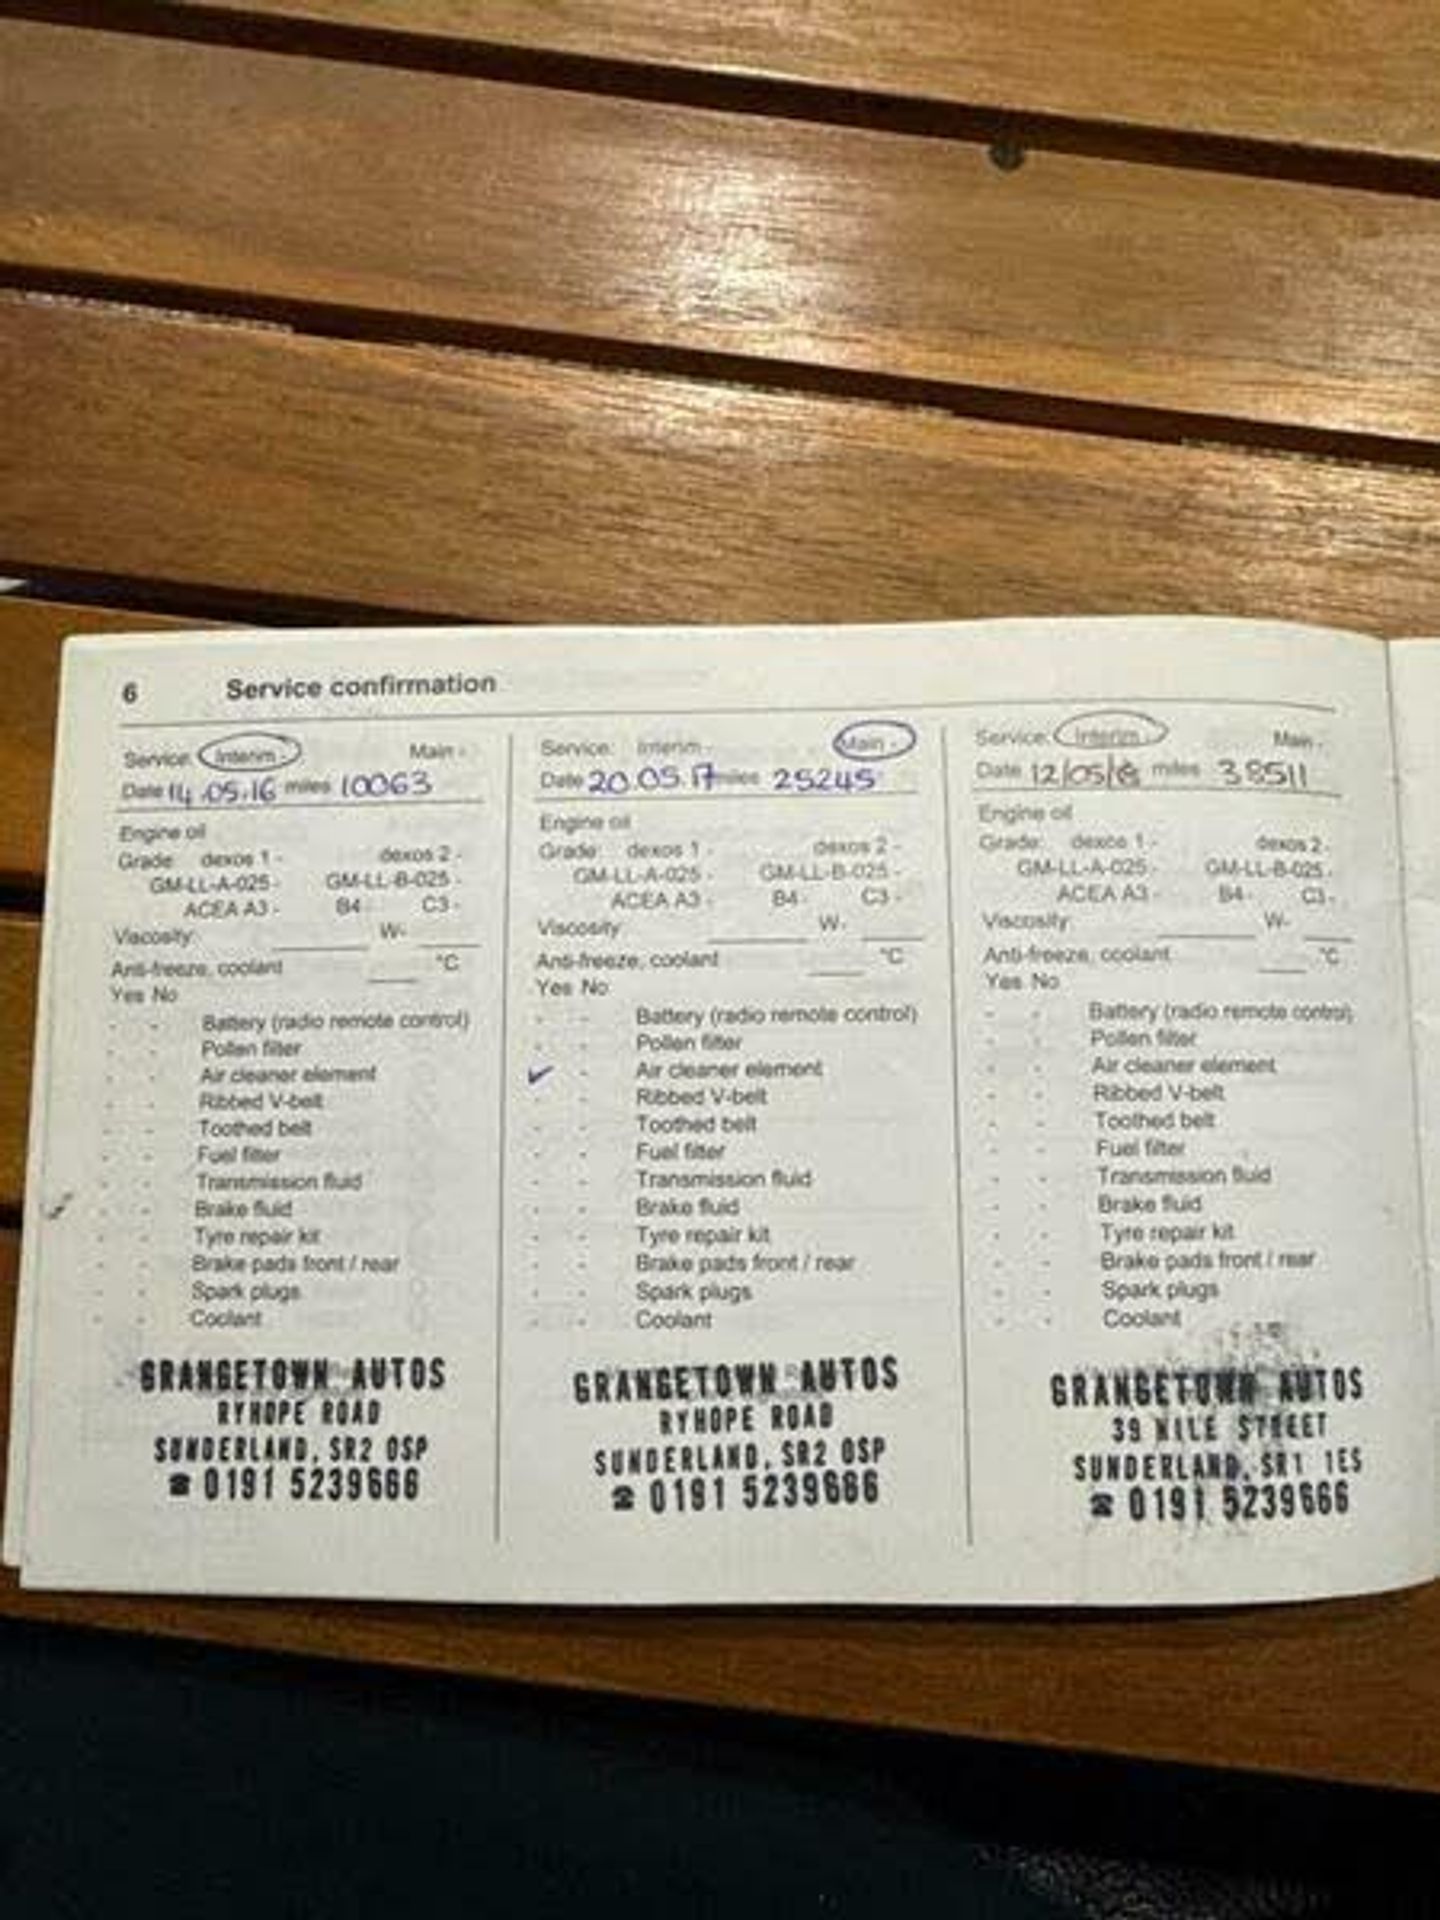 6 Service confirmation
Service: Interim - Main -
Date 14.05.16 miles 10063
Engine oil
Grade: dexos 1 - dexos 2 -
GM-LL-A-025 - GM-LL-B-025 -
ACEA A3 - B4 - C3 -
Viscosity: W-
Anti-freeze, coolant °C
Yes No
- - Battery (radio remote control)
- - Pollen filter
- - Air cleaner element
- - Ribbed V-belt
- - Toothed belt
- - Fuel filter
- - Transmission fluid
- - Brake fluid
- - Tyre repair kit
- - Brake pads front / rear
- - Spark plugs
- - Coolant
GRANGETOWN AUTOS
RYHOPE ROAD
SUNDERLAND, SR2 0SP
☎ 0191 5239666
Service: Interim - Main -
Date 20.05.17 miles 25245
Engine oil
Grade: dexos 1 - dexos 2 -
GM-LL-A-025 - GM-LL-B-025 -
ACEA A3 - B4 - C3 -
Viscosity W-
Anti-freeze, coolant °C
Yes No
- - Battery (radio remote control)
- - Pollen filter
✓ - Air cleaner element
- - Ribbed V-belt
- - Toothed belt
- - Fuel filter
- - Transmission fluid
- - Brake fluid
- - Tyre repair kit
- - Brake pads front / rear
- - Spark plugs
- - Coolant
GRANGETOWN AUTOS
RYHOPE ROAD
SUNDERLAND, SR2 0SP
☎ 0191 5239666
Service: Interim Main -
Date 12/05/18 miles 38511
Engine oil
Grade: dexos 1 - dexos 2 -
GM-LL-A-025 - GM-LL-B-025 -
ACEA A3 - B4 - C3 -
Viscosity: W-
Anti-freeze, coolant °C
Yes No
- - Battery (radio remote control)
- - Pollen filter
- - Air cleaner element
- - Ribbed V-belt
- - Toothed belt
- - Fuel filter
- - Transmission fluid
- - Brake fluid
- - Tyre repair kit
- - Brake pads front / rear
- - Spark plugs
- - Coolant
GRANGETOWN AUTOS
39 NILE STREET
SUNDERLAND, SR1 1ES
☎ 0191 5239666